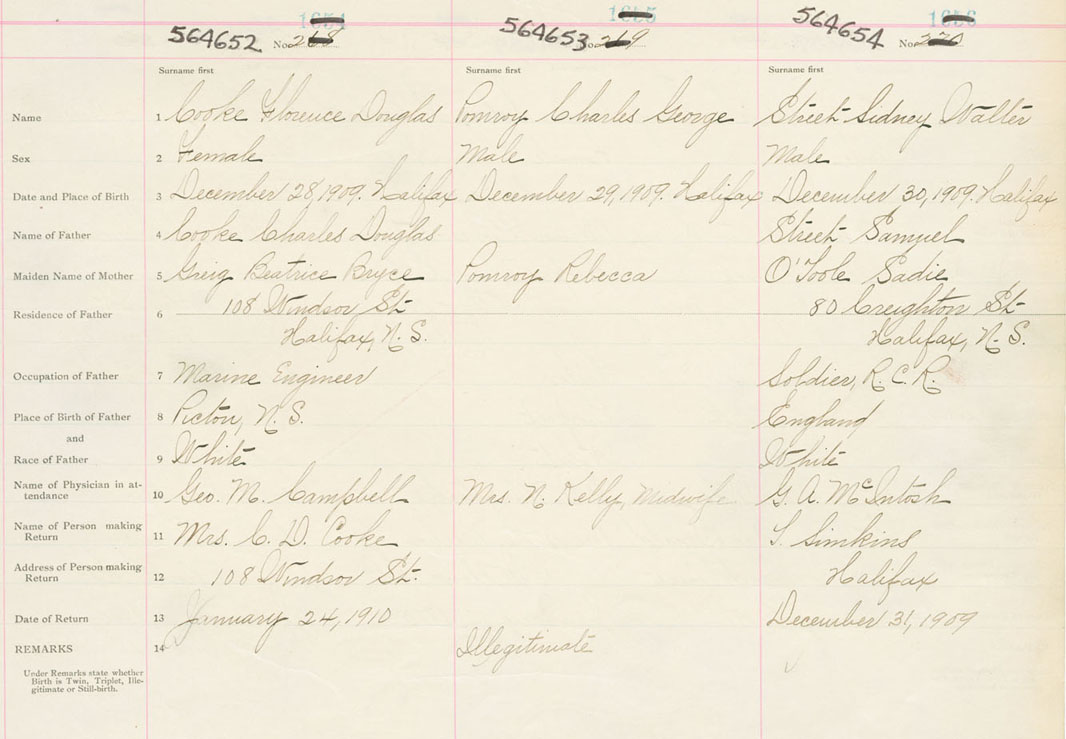 1654 1655 1656
564652 No. 268 564653 No. 269 564654 No. 270
Surname first Surname first Surname first
Name 1 Cooke Florence Douglas Pomroy Charles George Street Sidney Walter
Sex 2 Female Male Male
Date and Place of Birth 3 December 28, 1909. Halifax December 29, 1909. Halifax December 30, 1909. Halifax
Name of Father 4 Cooke Charles Douglas Street Samuel
Maiden Name of Mother 5 Greig Beatrice Bryce Pomroy Rebecca O'Toole Sadie
Residence of Father 6 108 Windsor St. 80 Creighton St.
Halifax, N.S. Halifax, N.S.
Occupation of Father 7 Marine Engineer Soldier, R.C.R.
Place of Birth of Father 8 Picton, N.S. England
and
Race of Father 9 White White
Name of Physician in at-
tendance 10 Geo. M. Campbell Mrs. N. Kelly, Midwife G. A. McIntosh
Name of Person making
Return 11 Mrs. C. D. Cooke S. Simkins
Address of Person making
Return 12 108 Windsor St. Halifax
Date of Return 13 January 24, 1910 December 31, 1909
REMARKS 14 Illegitimate
Under Remarks state whether
Birth is Twin, Triplet, Ille-
gitimate or Still-birth.